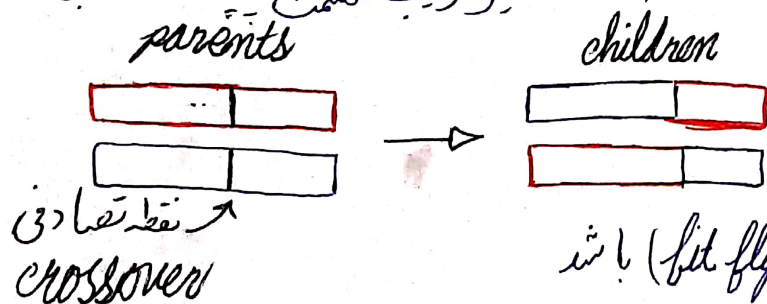 parents
children
نقطه تصادفی
crossover
(bit fly) باشد